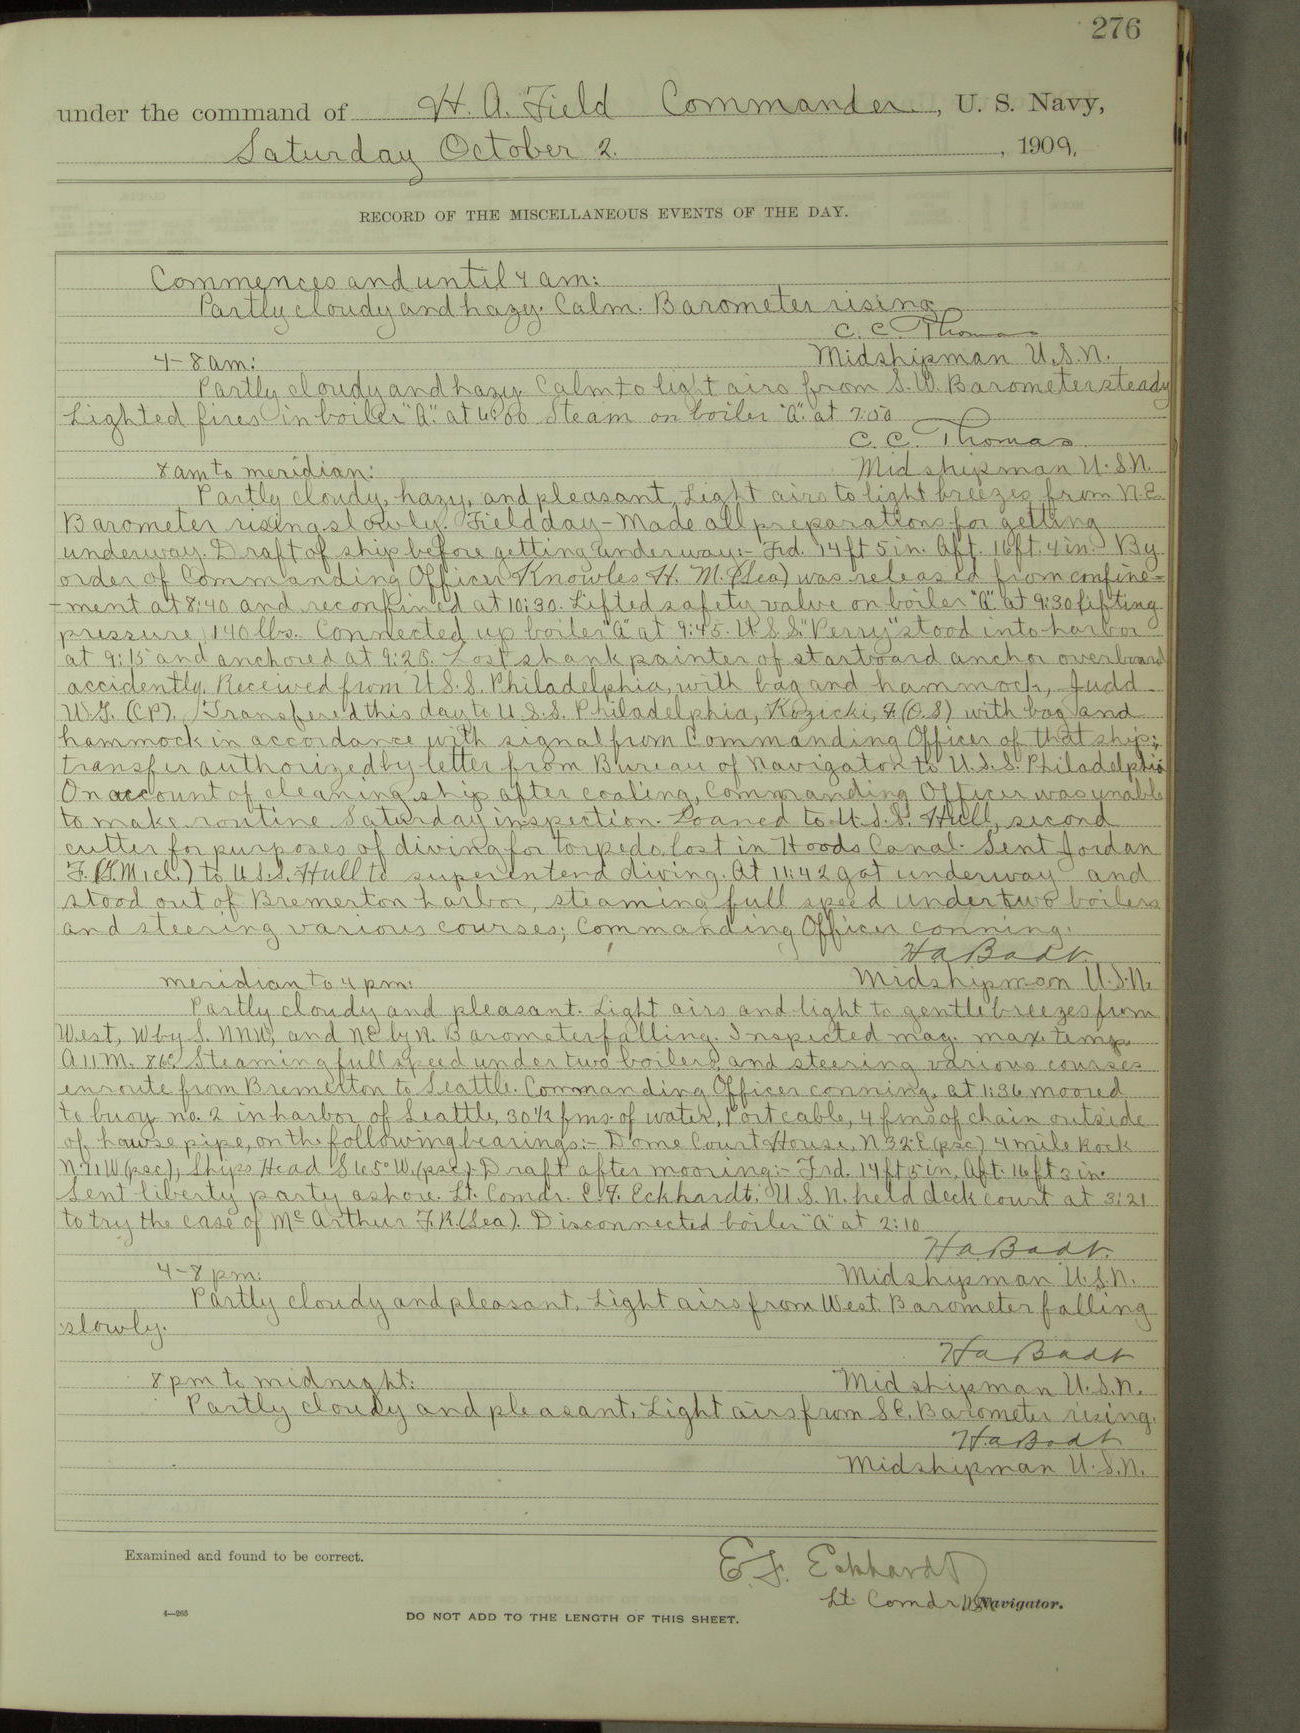 276
under the command of H. A. Field Commander, U. S. Navy,
Saturday October 2. , 1909.
RECORD OF THE MISCELLANEOUS EVENTS OF THE DAY.
Commences and until 4 am:
Partly cloudy and hazy. Calm. Barometer rising
C. C. Thomas
4-8 am: Midshipman U.S.N.
Partly cloudy and hazy. Calm to light airs from S.W. Barometer steady
Lighted fires in boiler "A" at 6:00 Steam on boiler "A" at 7:50
C. C. Thomas
8 am to meridian: Midshipman U.S.N.
Partly cloudy, hazy, and pleasant. Light airs to light breezes from N.E.
Barometer rising slowly. Field day - Made all preparations for getting
underway. Draft of ship before getting underway:- Frd. 14 ft 5 in. Aft. 16 ft. 4 in. By
order of Commanding Officer Knowles H. M. (Sea) was released from confine=
-ment at 8:40 and reconfined at 10:30. Lifted safety valve on boiler "A" at 9:30 lifting
pressure, 140 lbs. Connected up boiler "A" at 9:45. U.S.S. "Perry" stood into harbor
at 9:15 and anchored at 9:28. Lost shank painter of starboard anchor overboard
accidently. Received from U.S.S. Philadelphia, with bag and hammock, Judd
W.G. (CP). Transfered this day to U.S.S. Philadelphia, Kozicki, F. (O.S) with bag and
hammock in accordance with signal from Commanding Officer of that ship;
transfer authorized by letter from Bureau of Navigaton to U.S.S. Philadelphia
On account of cleaning ship after coaling, Commanding Officer was unable
to make routine Saturday inspection. Loaned to U.S.S. Hull, second
cutter for purposes of diving for torpedo lost in Hoods Canal. Sent Jordan
F. (G.M.1cl.) to U.S.S. Hull to superintend diving. At 11:42 got underway and
stood out of Bremerton harbor, steaming full speed under two boilers
and steering various courses; Commanding Officer conning.
H A Badt.
meridian to 4 pm: Midshipman U.S.N.
Partly cloudy and pleasant. Light airs and light to gentle breezes from
West, W by S. NNW, and NE by N. Barometer falling. Inspected mag. max. temp.
A 11 M. 86°. Steaming full speed under two boilers, and steering various courses
enroute from Bremerton to Seattle. Commanding Officer conning, at 1:36 moored
to buoy no. 2 in harbor of Seattle, 30½ fms. of water, Port cable, 4 fms of chain outside
of hawse pipe, on the following bearings:- Dome Court House, N 32° E (psc) 4 mile Rock
N 71 W (psc), Ships Head S 65° W. (psc)- Draft after mooring:- Frd. 14 ft 5 in, Aft. 16 ft 3 in.
Sent liberty party ashore. Lt. Comdr. E. F. Eckhardt, U.S.N. held deck court at 3:21
to try the case of McArthur F.R. (Sea). Disconnected boiler "A" at 2:10
H A Badt.
4-8 pm: Midshipman U.S.N.
Partly cloudy and pleasant. Light airs from West. Barometer falling
slowly.
H A Badt
8 pm to midnight: Midshipman U.S.N.
Partly cloudy and pleasant. Light airs from SE. Barometer rising.
H A Badt
Midshipman U.S.N.
Examined and found to be correct.
E. F. Eckhardt
Lt. Comdr. USN Navigator.
4—265
DO NOT ADD TO THE LENGTH OF THIS SHEET.